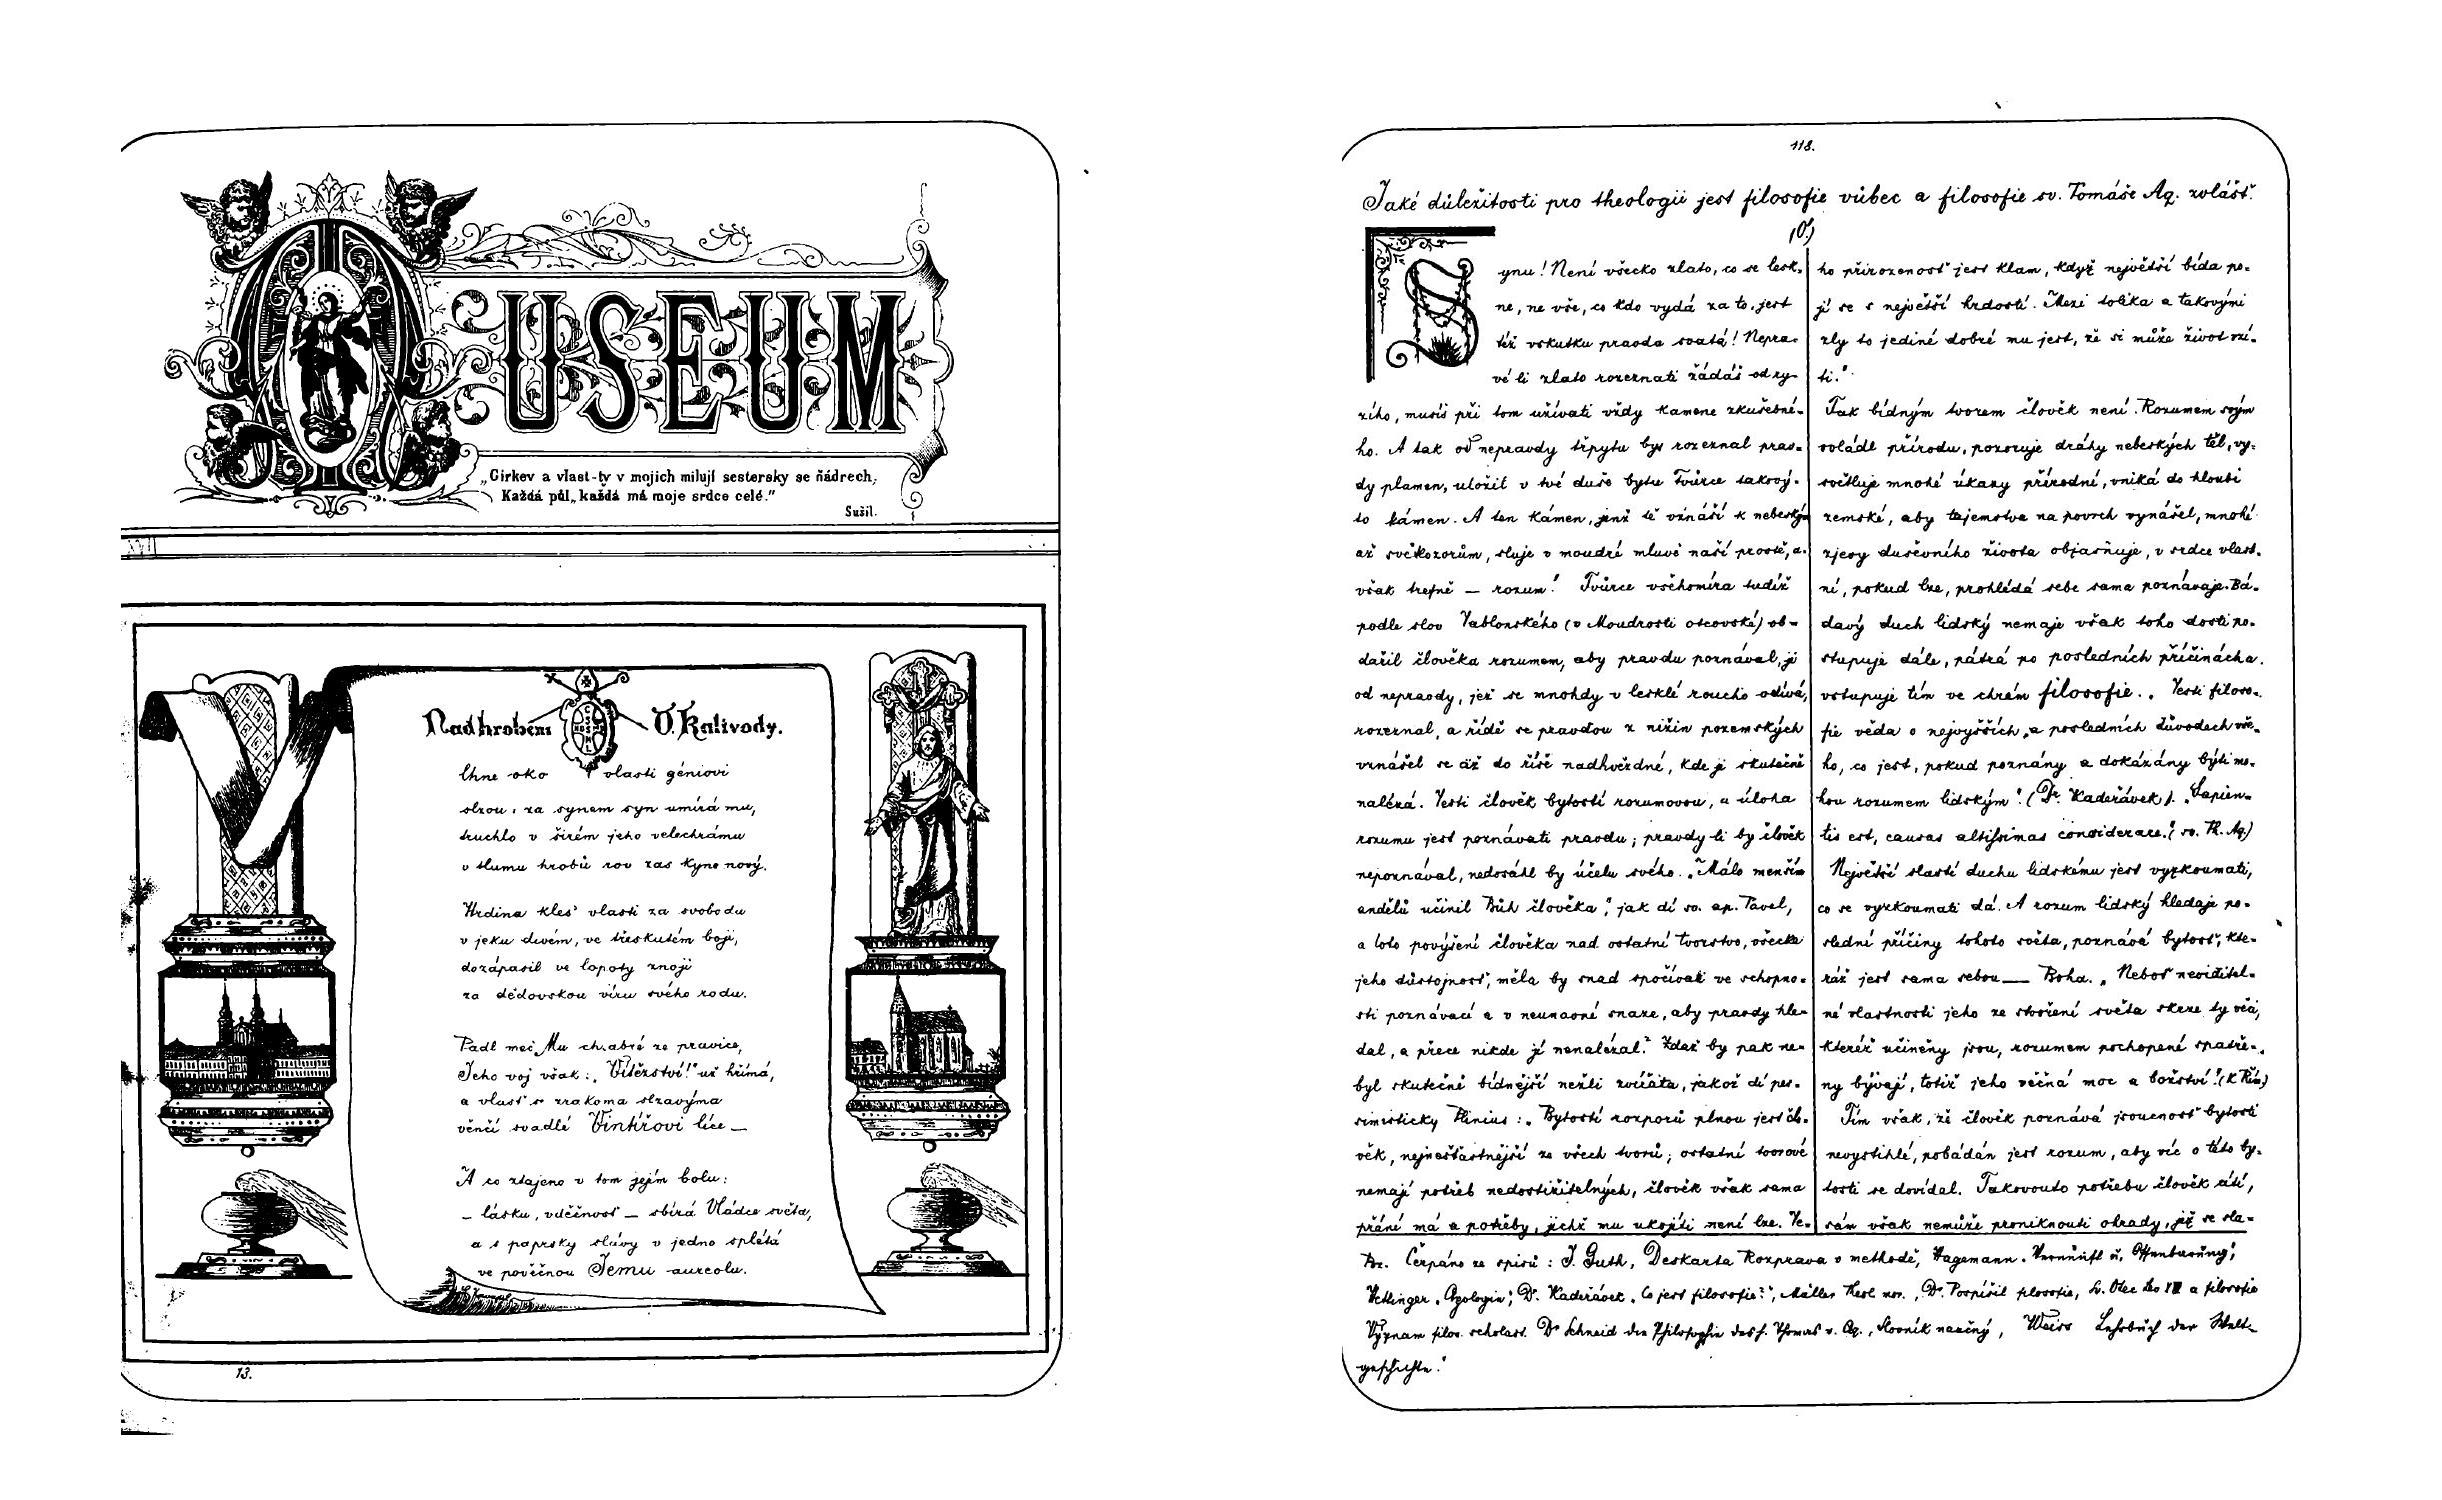 MUSEUM
„Církev a vlast-ty v mojich milují sestersky se ňádrech,
Každá půl, každá má moje srdce celé.”
Sušil.
XVII
Nad hrobem O. Kalivody.
lhne oko vlasti géniovi
slzou, za synem syn umírá mu,
truchlo v širém jeho velechrámu
v tlumu hrobů rov zas kyne nový.
Hrdina kles' vlasti za svobodu
v jeku divém, ve třeskutém boji,
dozápasil ve lopoty znoji
za dědovskou víru svého rodu.
Padl meč Mu chrabré ze pravice,
Jeho voj však: „Vítězství!" už hřímá,
a vlast' s zrakoma slzavýma
věnčí svadlé Vintířovi líce —
A co ztajeno v tom jejím bolu:
— lásku, vděčnost' — sbírá Vládce světa,
a s paprsky slávy v jedno splétá
ve povéčnou Jemu aureolu.
13.
118.
Jaké důležitosti pro theologii jest filosofie vůbec a filosofie sv. Tomáše Aq. zvlášť.
Synu! Není všecko zlato, co se lesk-
ne, ne vše, co kdo vydá za to, jest
též vskutku pravda svatá! Nepra-
vé li zlato rozeznati žádáš od ry-
zího, musíš při tom užívati vždy kamene zkušebné-
ho. A tak od nepravdy třpytu bys rozeznal prav-
dy plamen, uložil v tvé duše bytu Tvůrce takový-
to kámen. A ten kámen, jenž tě vznáší k nebeským
až světlozorům, sluje v moudré mluvě naší prostě, a-
však trefně — rozum! Tvůrce všehomíra tudíž
podle slov Jablonského (v Moudrosti otcovské) ob-
dařil člověka rozumem, aby pravdu poznával, ji
od nepravdy, jež se mnohdy v lesklé roucho odívá,
rozeznal, a řídě se pravdou z nižin pozemských
vznášel se až do říše nadhvězdné, kde ji skutečně
nalézá. Jestiť člověk bytostí rozumovou, a úloha
rozumu jest poznávati pravdu; pravdy-li by člověk
nepoznával, nedosáhl by účelu svého. „Málo menším
andělů učinil Bůh člověka", jak dí sv. ap. Pavel,
a toto povýšení člověka nad ostatní tvorstvo, všecka
jeho důstojnost', měla by snad spočívati ve schopno-
sti poznávací a v neunavné snaze, aby pravdy hle-
dal, a přece nikde jí nenalézal? Zdaž by pak ne-
byl skutečně bídnější nežli zvířata, jakož dí pes-
simisticky Plinius: „Bytostí rozporů plnou jest člo-
věk, nejnešťastnější ze všech tvorů; ostatní tvorové
nemají potřeb nedostižitelných, člověk však sama
přání má a potřeby, jichž mu ukojiti není lze. Je-
ho přirozenost' jest klam, když největší bída po-
jí se s největší hrdostí. Mezi tolika a takovými
zly to jediné dobré mu jest, že si může život vzí-
ti."
Tak bídným tvorem člověk není. Rozumem svým
ovládl přírodu, pozoruje dráhy nebeských těl, vy-
světluje mnohé úkazy přírodní, vniká do hloubi
zemské, aby tajemstva na povrch vynášel, mnohé
zjevy duševního života objasňuje, v srdce vlast-
ní, pokud lze, prohlédá sebe sama poznávaje. Bá-
davý duch lidský nemaje však toho dosti po-
stupuje dále, pátrá po posledních příčinách a
vstupuje tím ve chrám filosofie. „Jesti filoso-
fie věda o nejvyšších a posledních důvodech vše-
ho, co jest, pokud poznány a dokázány býti mo-
hou rozumem lidským" (Dr. Kadeřávek). „Sapien-
tis est, causas altissimas considerare." (sv. Th. Aq)
Největší slastí duchu lidskému jest vyzkoumati,
co se vyzkoumati dá. A rozum lidský hledaje po-
slední příčiny tohoto světa, poznává bytost', kte-
ráž jest sama sebou — Boha. „Neboť neviditel-
né vlastnosti jeho ze stvoření světa skrze ty věci,
kteréž učiněny jsou, rozumem pochopené spatře-
ny bývají, totiž jeho věčná moc a božství." (K Řím.)
Tím však, že člověk poznává jsoucnost' bytosti
nevystihlé, pobádán jest rozum, aby víc o této by-
tosti se dovídal. Takovouto potřebu člověk cítí,
sám však nemůže proniknouti ohrady, jež se sta-
Poz. Čerpáno ze spisů: J. Guth, Deskarta Rozprava o methodě, Hagemann „Vernunft u. Offenbarung",
Hettinger „Apologie", Dr. Kadeřávek „Co jest filosofie?", Müller Theol. mor., Dr. Pospíšil filosofie, Sv. Otec Leo XIII a filosofie
Význam filos. scholast. Dr Schneid die Philosophie des h. Thomas v. Aq., Slovník naučný, Weiss Lehrbuch der Welt-
geschichte."